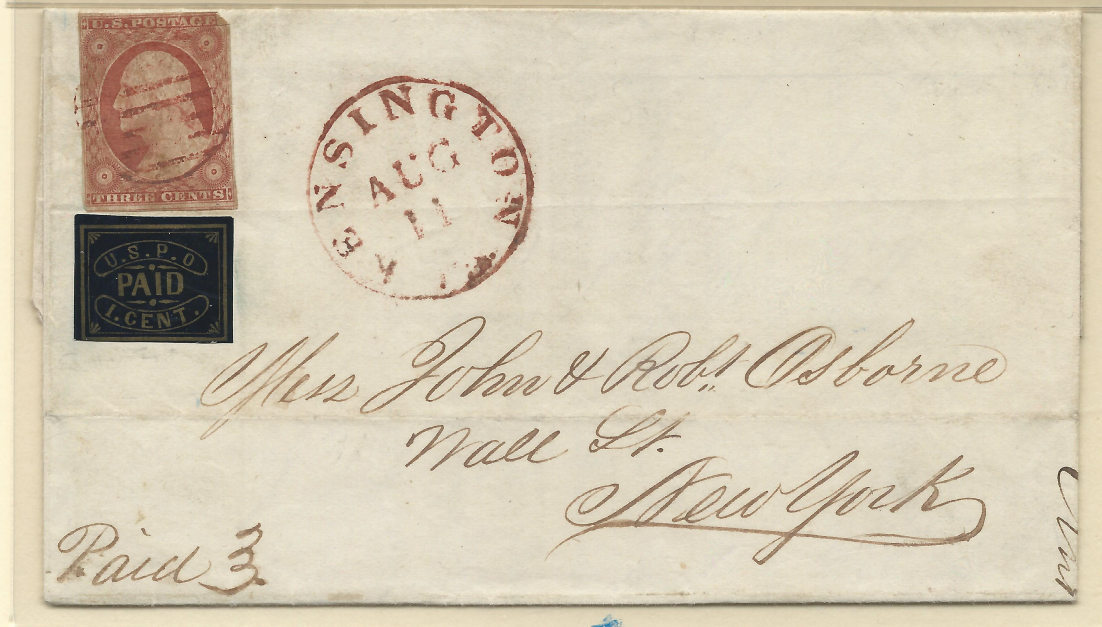 U.S. POSTAGE
THREE CENTS
U.S.P.O
PAID
1. CENT.
KENSINGTON
AUG
11
Mess John & Robt Osborne
Wall St.
New York
Paid 3.